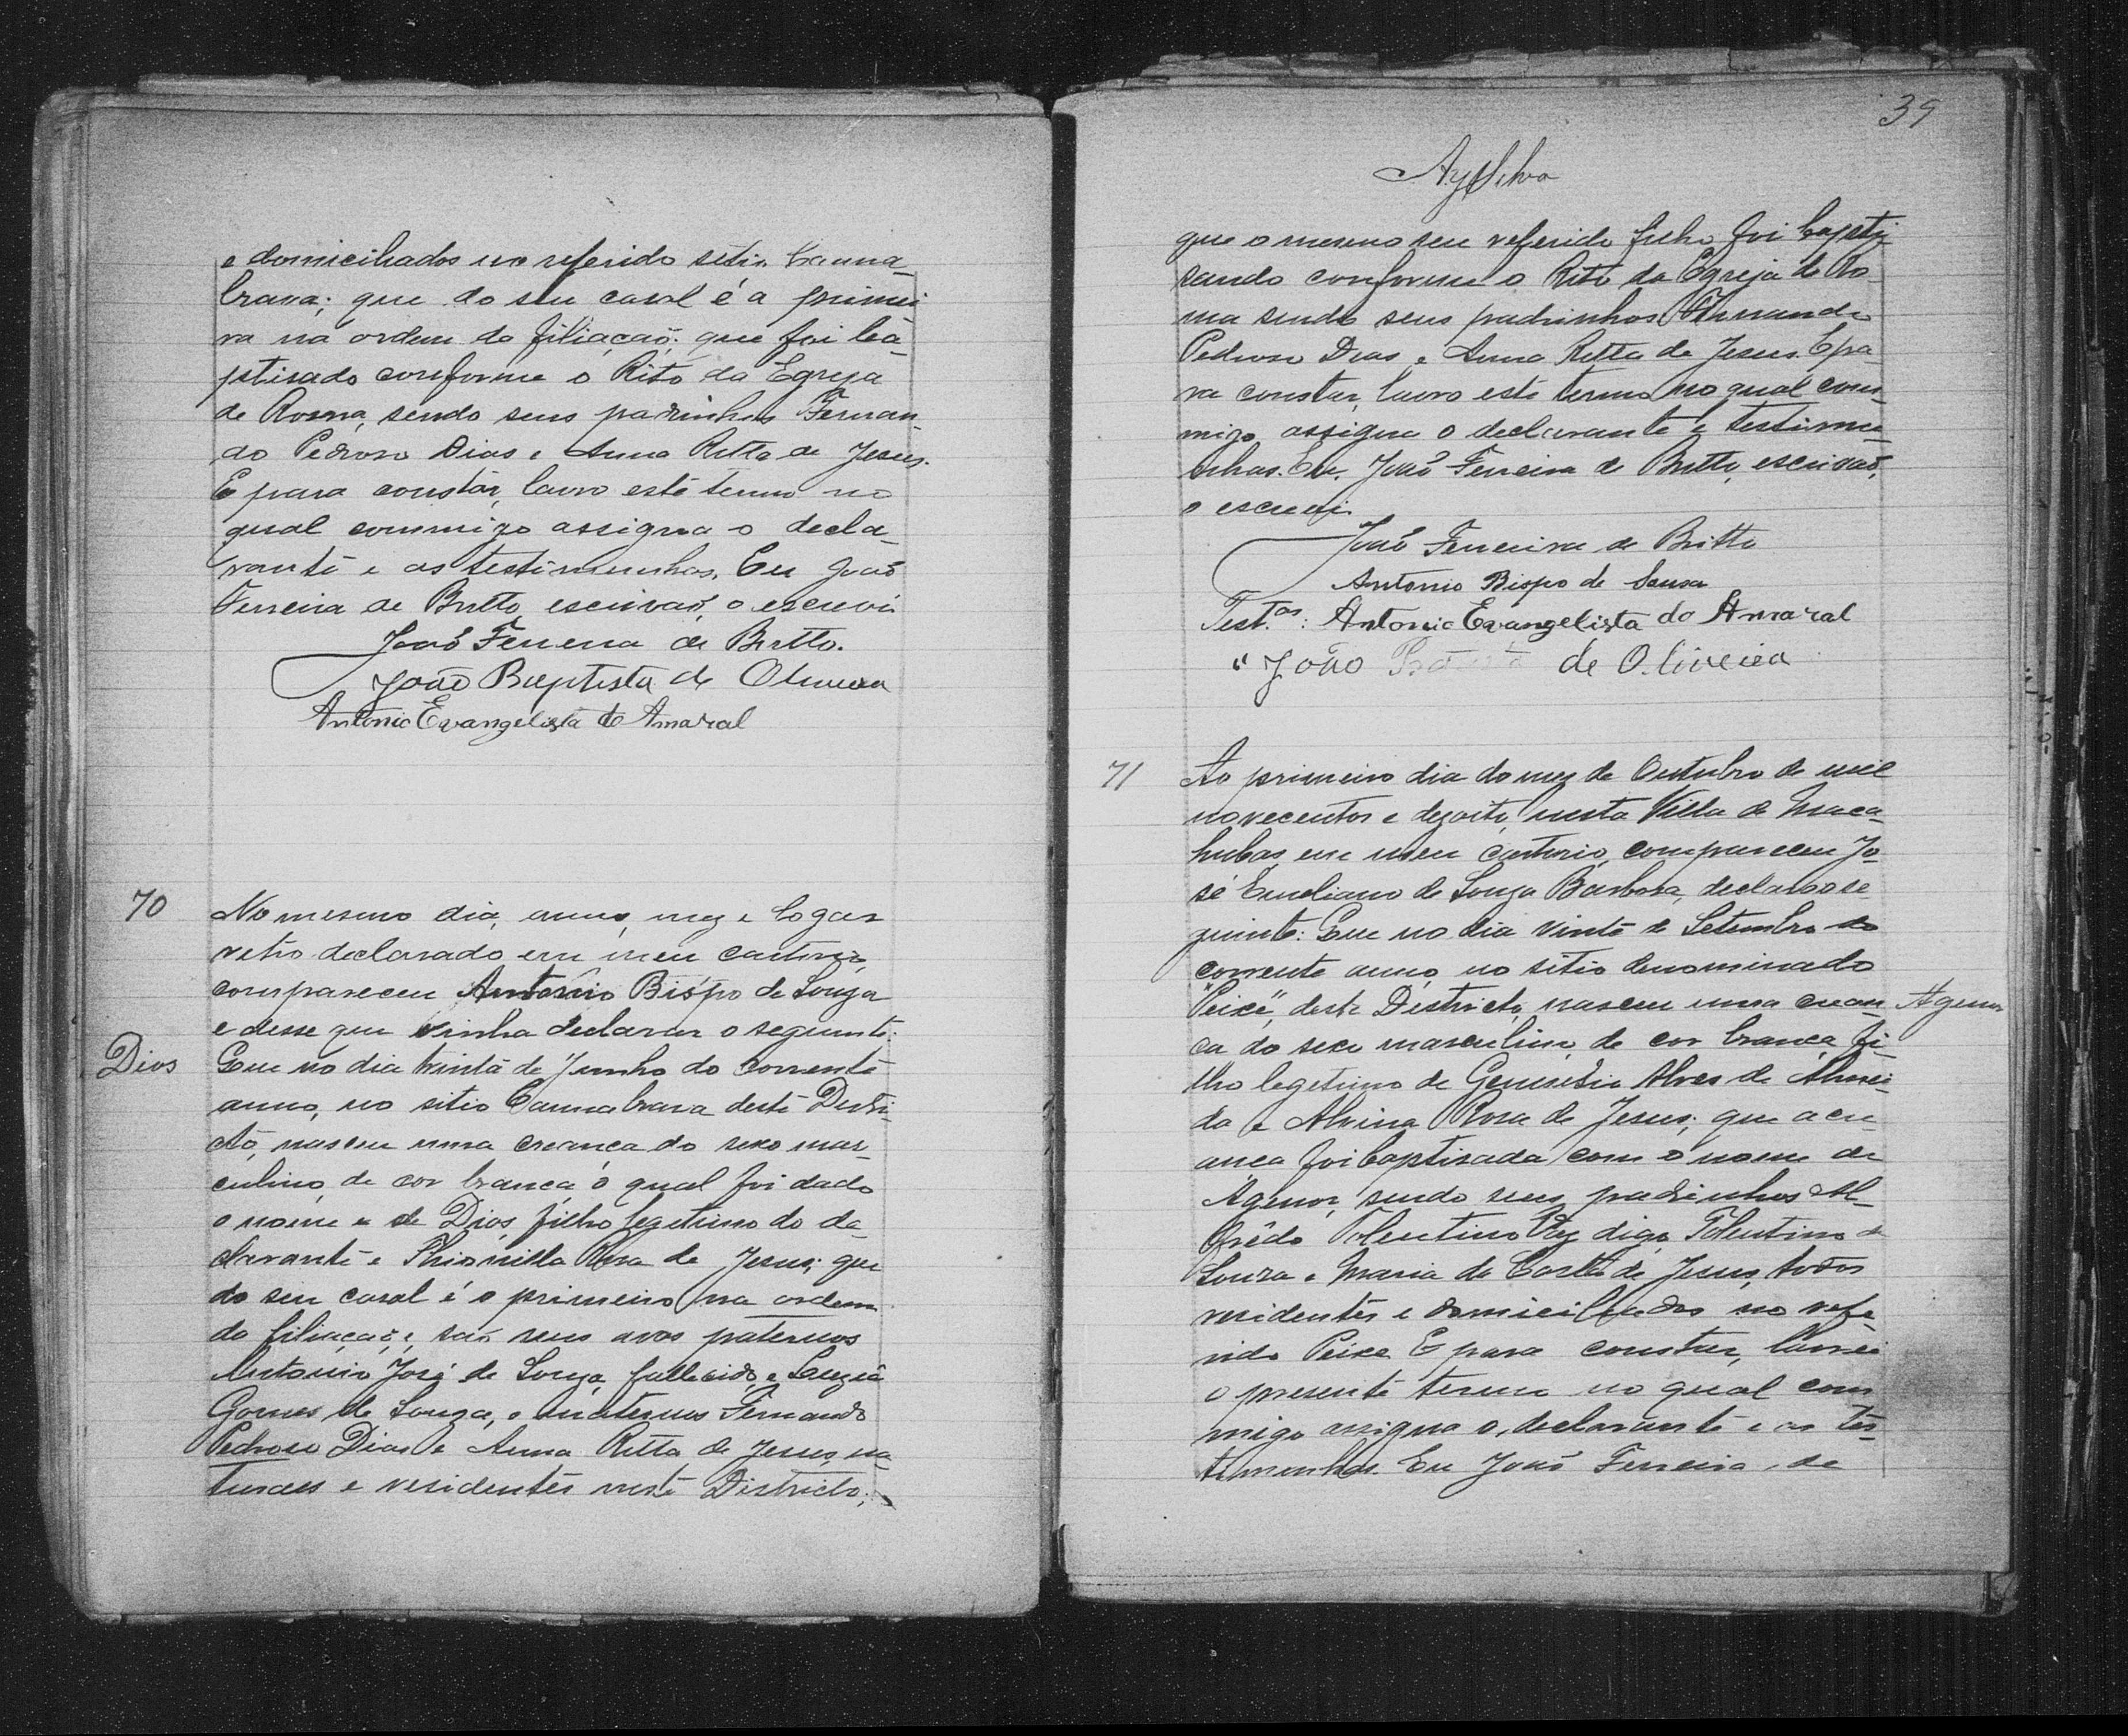 e domiciliados no referido sitio Canna-
brava; que do seu casal é a primei
ra na ordem da filiação; que foi ba-
ptisado conforme o Rito da Egreja
de Roma, sendo seus padrinhos Fernan-
do Pedroso Dias e Anna Ritta de Jesus.
E para constár, lavro este termo no
qual commigo assigna o decla-
rante e as testimunhas. Eu João
Ferreira de Britto, escrivaõ, o escrevi
João Ferreira de Britto.
João Baptista de Oliveira
Antonio Evangelista do Amaral
70
No mesmo dia, anno, mez e logar
retro declarado em meu cartorio,
compareceu Antonio Bispo de Souza
e desse que vinha declarar o seguinte:
Dios
Que no dia trinta de Junho do corrente
anno, no sitio Cannabrava deste Distri-
cto, nasceu uma creança do sexo mas-
culino, de cor branca o qual foi dado
o nome de Dios, filho legitimo do de-
clarante e Rosa de Jesus; que
do seu casal é o primeiro na ordem
da filiação, e saõ seus avos paternos
Antonio José de Souza, fallecido, e Luzia
Gomes de Souza, e maternos Fernando
Pedroso Dias e Anna Ritta de Jesus, na-
turaes e residentes neste Districto;
39
que o mesmo seu referido filho foi bapti
sando conforme o Rito da Egreja de Ro-
ma sendo seus padrinhos Fernando
Pedroso Dias e Anna Ritta de Jesus. E pa-
ra constar, lavro este termo no qual com-
migo assigna o declarante e testimu-
nhas. Eu, João Ferreira de Britto, escrivaõ,
o escrevi.
João Ferreira de Britto
Antonio Bispo de Sousa
Test.as: Antonio Evangelista do Amaral
" João de Oliveira
71
Ao primeiro dia do mez de Outubro de mil
novecentos e dezoito, nesta Villa de Maca-
hubas, em meu cartorio, compareceu Jo-
sé Emeliano de Souza Barbosa, declarou o se-
guinte: Que no dia vinte de Setembro do
corrente anno, no sitio denominado
"Peixe", deste Districto, nasceu uma crean-
Agenor
ça do sexo masculino, de cor branca, fi-
lho legetimo de Genesio Alves de Almei-
da e Alvina Rosa de Jesus; que a cre
ança foi baptisada com o nome de
Agenor, sendo seus padrinhos Al-
frêdo Tolentino digo Tolentino de
Souza e Maria da Costa de Jesus, todos
residentes e domiciliados no refe-
rido Peixe. E para constar, lavrei
o presente termo no qual com
migo assigna o declarante e as tes-
timunhas. Eu João Ferreira de